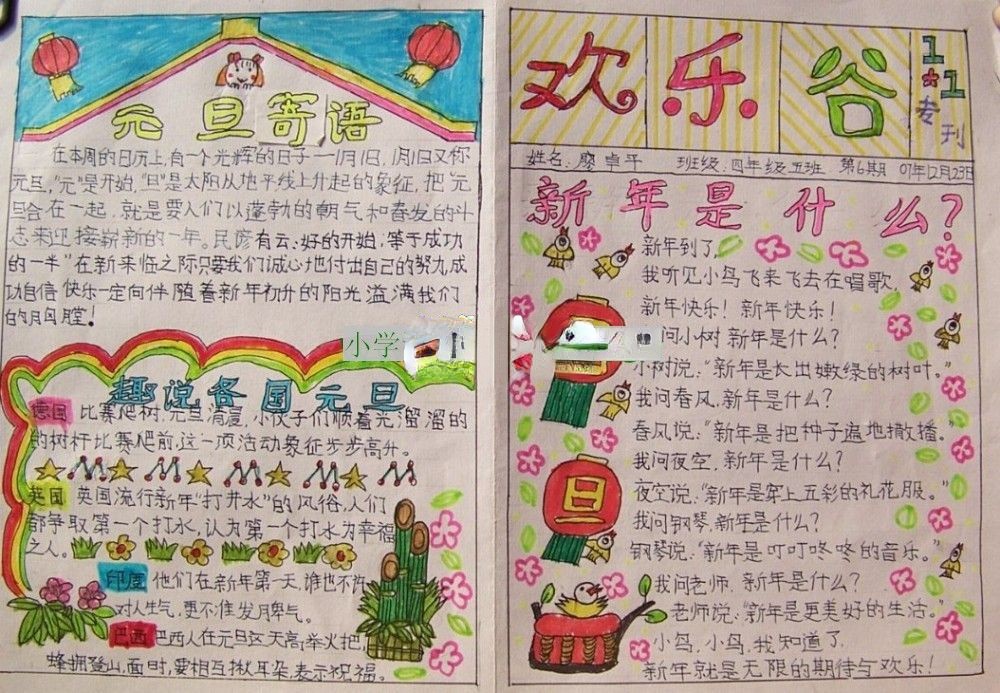 元旦寄语
在本周的日历上,有一个光辉的日子——1月1日,1月1日又称
元旦,"元"是开始,"旦"是太阳从地平线上升起的象征,把"元
旦合在一起,就是要人们以蓬勃的朝气和奋发的斗
志来迎接崭新的一年。民谚有云:好的开始,等于成功
的一半"在新来临之际只要我们诚心地付出自己的努力,成
功自信快乐一定向伴随着新年初升的阳光溢满我们
的胸膛!
小学
趣说各国元旦
德国 比赛爬树元旦清晨,小伙子们顺着光溜溜的
的树杆比赛爬前,这一项活动象征步步高升。
英国 英国流行新年"打井水"的风俗,人们
都争取第一个打水,认为第一个打水为幸福
之人。
印度 他们在新年第一天,谁也不许
对人生气,更不准发脾气。
巴西 巴西人在元旦这天高举火把,
蜂拥登山,面时,要相互揪耳朵,表示祝福。
欢乐谷
1★1
专刊
姓名:廖卓平 班级:四年级五班 第6期 07年12月23日
新年是什么?
新年到了
我听见小鸟飞来飞去在唱歌,
新年快乐!新年快乐!
问小树新年是什么?
小树说:"新年是长出嫩绿的树叶。"
我问春风,新年是什么?
春风说:"新年是把种子遍地撒播。"
我问夜空,新年是什么?
夜空说:"新年是穿上五彩的礼花服。"
我问钢琴,新年是什么?
钢琴说:"新年是叮叮咚咚的音乐。"
我问老师,新年是什么?
老师说:"新年是更美好的生活。"
小鸟,小鸟,我知道了
新年就是无限的期待与欢乐!
旦